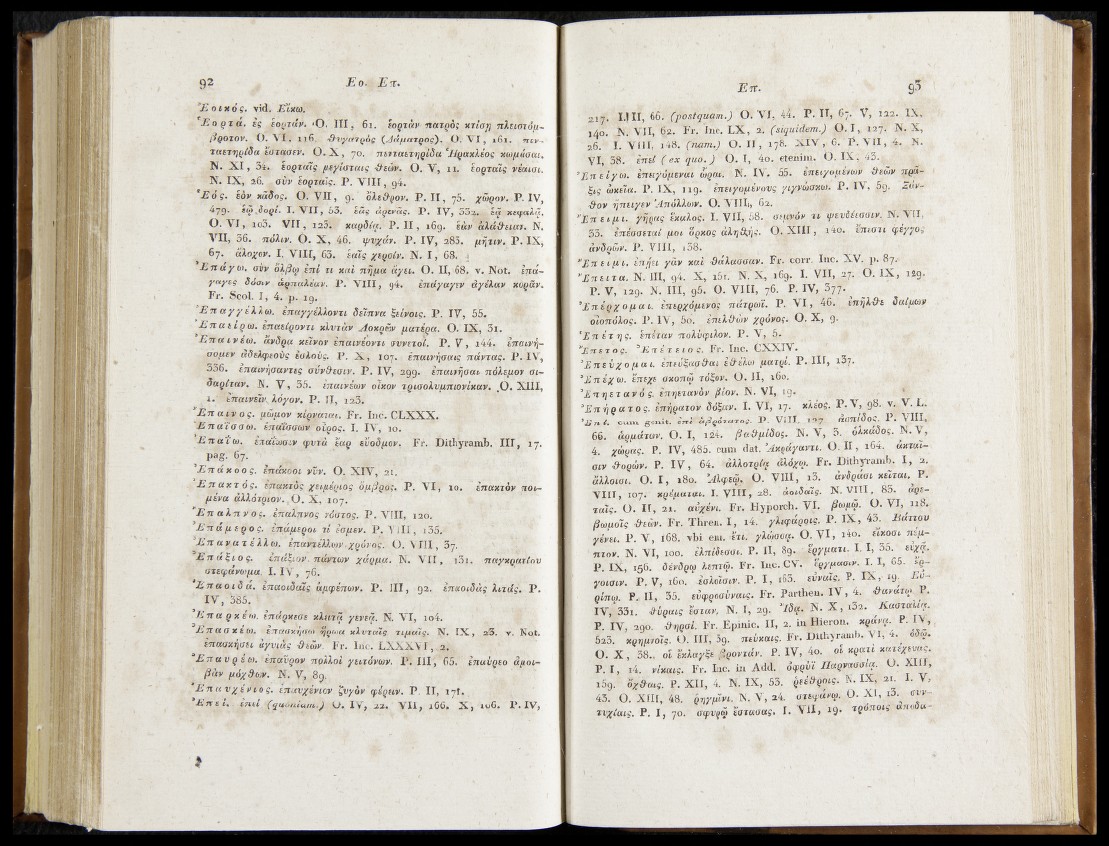 92 Εο. Επ.
Ἐοικός. vid. Εἴκω.
Ἑορτά. ἐς ἑορτάν. O. III, 61. ἑορτὰν πατρὸς κτίσῃ πλειστόμ-
βροτον. O. VI, 116. θυγατρὸς (Δάματρος). O. VI, 161. πεν-
ταετηρίδα ἔστασεν. O. X, 70. πενταετηρίδα Ἡρακλέος κωμάσαι.
N. XI, 34. ἑορταῖς μεγίσταις θεῶν. O. V, 11. ἑορταῖς νέαισι.
N. IX, 26. σὺν ἑορταῖς. P. VIII, 94.
Ἑός. ἑὸν κᾶδος. O. VII, 9. ὄλεθρον. P. II, 75. χῶρον. P. IV,
479. ἑῷ δορί. I. VII, 53. ἑᾶς 332. ἑᾷ κεφαλᾷ.
O. VI, 103. VII, 123. καρδίᾳ. P. II, 169. ἑὰν ἀλάθειαν. N.
VII, 36. πόλιν. O. X, 46. ψυχάν. P. IV, 283. μῆτιν. P. IX,
67. ἄλοχον. I. VIII, 63. ἑαῖς χερσίν. N. I, 68.
Ἐπάγω. σὺν ὄλβῳ ἐπί τι καὶ πῆμα ἄγει. O. II, 68. v. Not. ἐπά-
γαγες δόσιν ἁρπαλέαν. P. VIII, 94. ἐπάγαγεν ἀγέλαν κορᾶν.
Fr. Scol. I, 4. p. 19.
Ἐπαγγέλλω. ἐπαγγέλλοντι δεῖπνα ξείνοις. P. IV, 55.
Ἐπαείρω. ἐπαείροντι κλυτὰν Λοκρῶν ματέρα. O. IX, 31.
Ἐπαινέω. ἄνδρα κεῖνον ἐπαινέοντι συνετοί. P. V, 144. ἐπαινή-
σομεν ἀδελφεοὺς ἐσλούς. P. X, 107. ἐπαινήσαις πάντας. P. IV,
336. ἐπαινήσαντες σύνθεσιν. P. IV, 299. ἐπαινῆσαι πόλεμον σι-
δαρίταν. N. V, 35. ἐπαινέων οἶκον τρισολυμπιονίκαν. O. XIII,
1. ἐπαινεῖν λόγον. P. II, 123.
Ἔπαινος. μῶμον κίρναται. Fr. Inc. CLXXX.
Ἐπαΐσσω. ἐπαΐσσων οὖρος. I. IV, 10.
Ἐπαΐω. ἐπαΐωσιν φυτὰ ἔαρ εὔοδμον. Fr. Dithyramb. III, 17.
pag. 67.
Ἐπάκοος. ἐπάκοοι νῦν. O. XIV, 21.
Ἐπακτός. ἐπακτὸς χειμέριος ὄμβρος. P. VI, 10. ἐπακτὸν ποι-
μένα ἀλλότριον. O. X, 107.
Ἔπαλπνος. ἐπάλπνος νόστος. P. VIII, 120.
Ἐπάμερος. ἐπάμεροι τί ἐσμεν. P. VIII, 135.
Ἐπανατέλλω. ἐπαντέλλων χρόνος. O. VIII, 37.
Ἐπάξιος. ἐπάξιον πάντων χάρμα. N. VII, 131. παγκρατίου
στεφάνωμα. I. IV, 76.
Ἐπαοιδά. ἐπαοιδαῖς ἀμφέπων. P. III, 92. ἐπαοιδὰς λιτάς. P.
IV, 385.
Ἐπαρκέω. ἐπάρκεσε κλειτᾷ γενεᾷ. N. VI, 104.
Ἐπασκέω. ἐπασκήσω ἥρωα κλυταῖς τιμαῖς. N. IX, 23. v. Not.
ἐπασκήσει ἀγυιὰς θεῶν. Fr. Inc. LXXXVI, 2.
Ἐπαυρέω. ἐπαῦρον πολλοὶ γειτόνων. P. III, 65. ἐπαυρεο ἀμοι-
βὰν μόχθων. N. V, 89.
Ἐπαυχένιος. ἐπαυχένιον ζυγὸν φέρειν. P. II, 171.
Ἐπεί. ἐπεὶ (quoniam.) O. IV, 22. VII, 166. X, 106. P. IV,
Επ. 93
217. I. III, 66. (postquam.) O. VI, 44. P. II, 67. V, 122. IX,
140. N. VII, 62. Fr. Inc. LX, 2. (siquidem.) O. I, 127. N. X,
26. I. VIII, 148. (nam.) O. II, 178. XIV, 6. P. VII, 4. N.
VI, 38. ἐπεί (ex quo.) O. I, 40. etenim. O. IX. 43.
Ἐπείγω. ἐπειγόμεναι ὧραι. N. IV, 55. ἐπειγομένων θεῶν πρᾶ-
ξις ὠκεῖα. P. IX, 119. ἐπειγομένους γιγνώσκω. P. IV, 59. Ξάν-
θον ἤπειγεν Ἀπόλλων. O. VIII, 62.
Ἔπειμι. γῆρας ἔκαλος. I. VII, 58. σεμνόν τι ψευδέεσσιν. N. VII,
33. ἐπέσσεταί μοι ὅρκος ἀληθής. O. XIII, 140. ἔπεστι φέγγος
ἀνδρῶν. P. VIII, 138.
Ἔπειμι. ἐπῄει γᾶν καὶ θάλασσαν. Fr. corr. Inc. XV. p. 87.
Ἔπειτα. N. III, 94. X, 151. N. X, 169. I. VII, 27. O. IX, 129.
P. V, 129. N. III, 95. O. VIII, 76. P. IV, 377.
Ἐπέρχομαι. ἐπερχόμενος πάτρωΐ. P. VI, 46. ἐπῆλθε δαίμων
οἰοπόλος. P. IV, 50. ἐπελθὼν χρόνος. O. X, 9.
Ἐπέτης. ἐπέταν πολύφιλον. P. V, 5.
Ἔπετος. Ἐπέτειος. Fr. Inc. CXXIV.
Ἐπεύχομαι. ἐπεύξασθαι ἐθέλω ματρί. P. III, 137.
Ἐπέχω. ἔπεχε σκοπῷ τόξον. O. II, 160.
Ἐπηετανός. ἐπηετανὸν βίον. N. VI, 19.
Ἐπήρατος. ἐπήρατον δόξαν. I. VI, 17. κλέος. P. V, 98. v. V. L.
Ἐπί. cum genit. P. VIII, ἀσπίδος. P. VIII,
66. ἁρμάτων. O. I, 124. βαθμίδος. N. V, 5. ὁλκάδος. N. V,
4. χώρας. P. IV, 485. cum dat. Ἀκράγαντι. O. II, 164. ἀκταῖ-
σιν θορών. P. IV, 64. ἀλλοτρίᾳ ἀλόχῳ. Fr. Dithyramb. I, 2.
ἄλλοισι. O. I, 180. Ἀλφεῷ. O. VIII, 13. ἀνδράσι κεῖται. P.
VIII, 107. κρέμαται. I. VIII, 28. ἀοιδαῖς. N. VIII, 83. ἀρε-
ταῖς. O. II, 21. αὐχένι. Fr. Hyporch. VI. βωμῷ. O. VI, 118.
βωμοῖς θεῶν. Fr. Thren. I, 14. γλεφάροις. P. IX, 43. Βάττου
γένει. P. V, 168. vbi em. ἔτι. γλώσσᾳ. O. VI, 140. εἴκοσι πέμ-
πτον. N. VI, 100. ἐλπίδεσσι. P. II, 89. ἔργμασι. I. I, 35. εὐχᾷ.
P. IX, 156. δένδρῳ λεπτῷ. Fr. Inc. CV. ἔργμασιν. I. I, 65. ἔρ-
γοισιν. P. V, 160. ἐσλοῖσιν. P. I, 163. εὐναῖς. P. IX, 19. Εὐ-
ρίπῳ. P. II, 35. εὐφροσύναις. Fr. Parthen. IV, 4. θανάτῳ P.
IV, 331. θύραις ἔσταν. N. I, 29. Ἴδᾳ. N. X, 132. Κασταλίᾳ.
P. IV, 290. θηρσί. Fr. Epinic. II, 2. in Hieron. κράνᾳ. P. IV,
523. κρημνοῖς. O. III, 39. πεύκαις. Fr. Dithyramb. VI, 4. ὁδῷ.
O. X, 38. οἱ ἔκλαγξε βροντάν. P. IV, 40. οἱ κρατὶ κατέχευας.
P. I, 14. νίκαις. Fr. Inc. in Add. ὀφρύϊ Παρνασσίᾳ. O. XIII,
159. ὄχθαις. P. XII, 4. N. IX, 53. ῥεέθροις. N. IX, 21. I. V,
43. O. XIII, 48. ῥηγμῖνι. N. V, 24. στεφάνῳ. O. XI, 13. συν-
τυχίαις. P. I, 70. σφυρῷ ἔστασας. I. VII, 19. τρόποις ἀποδα-